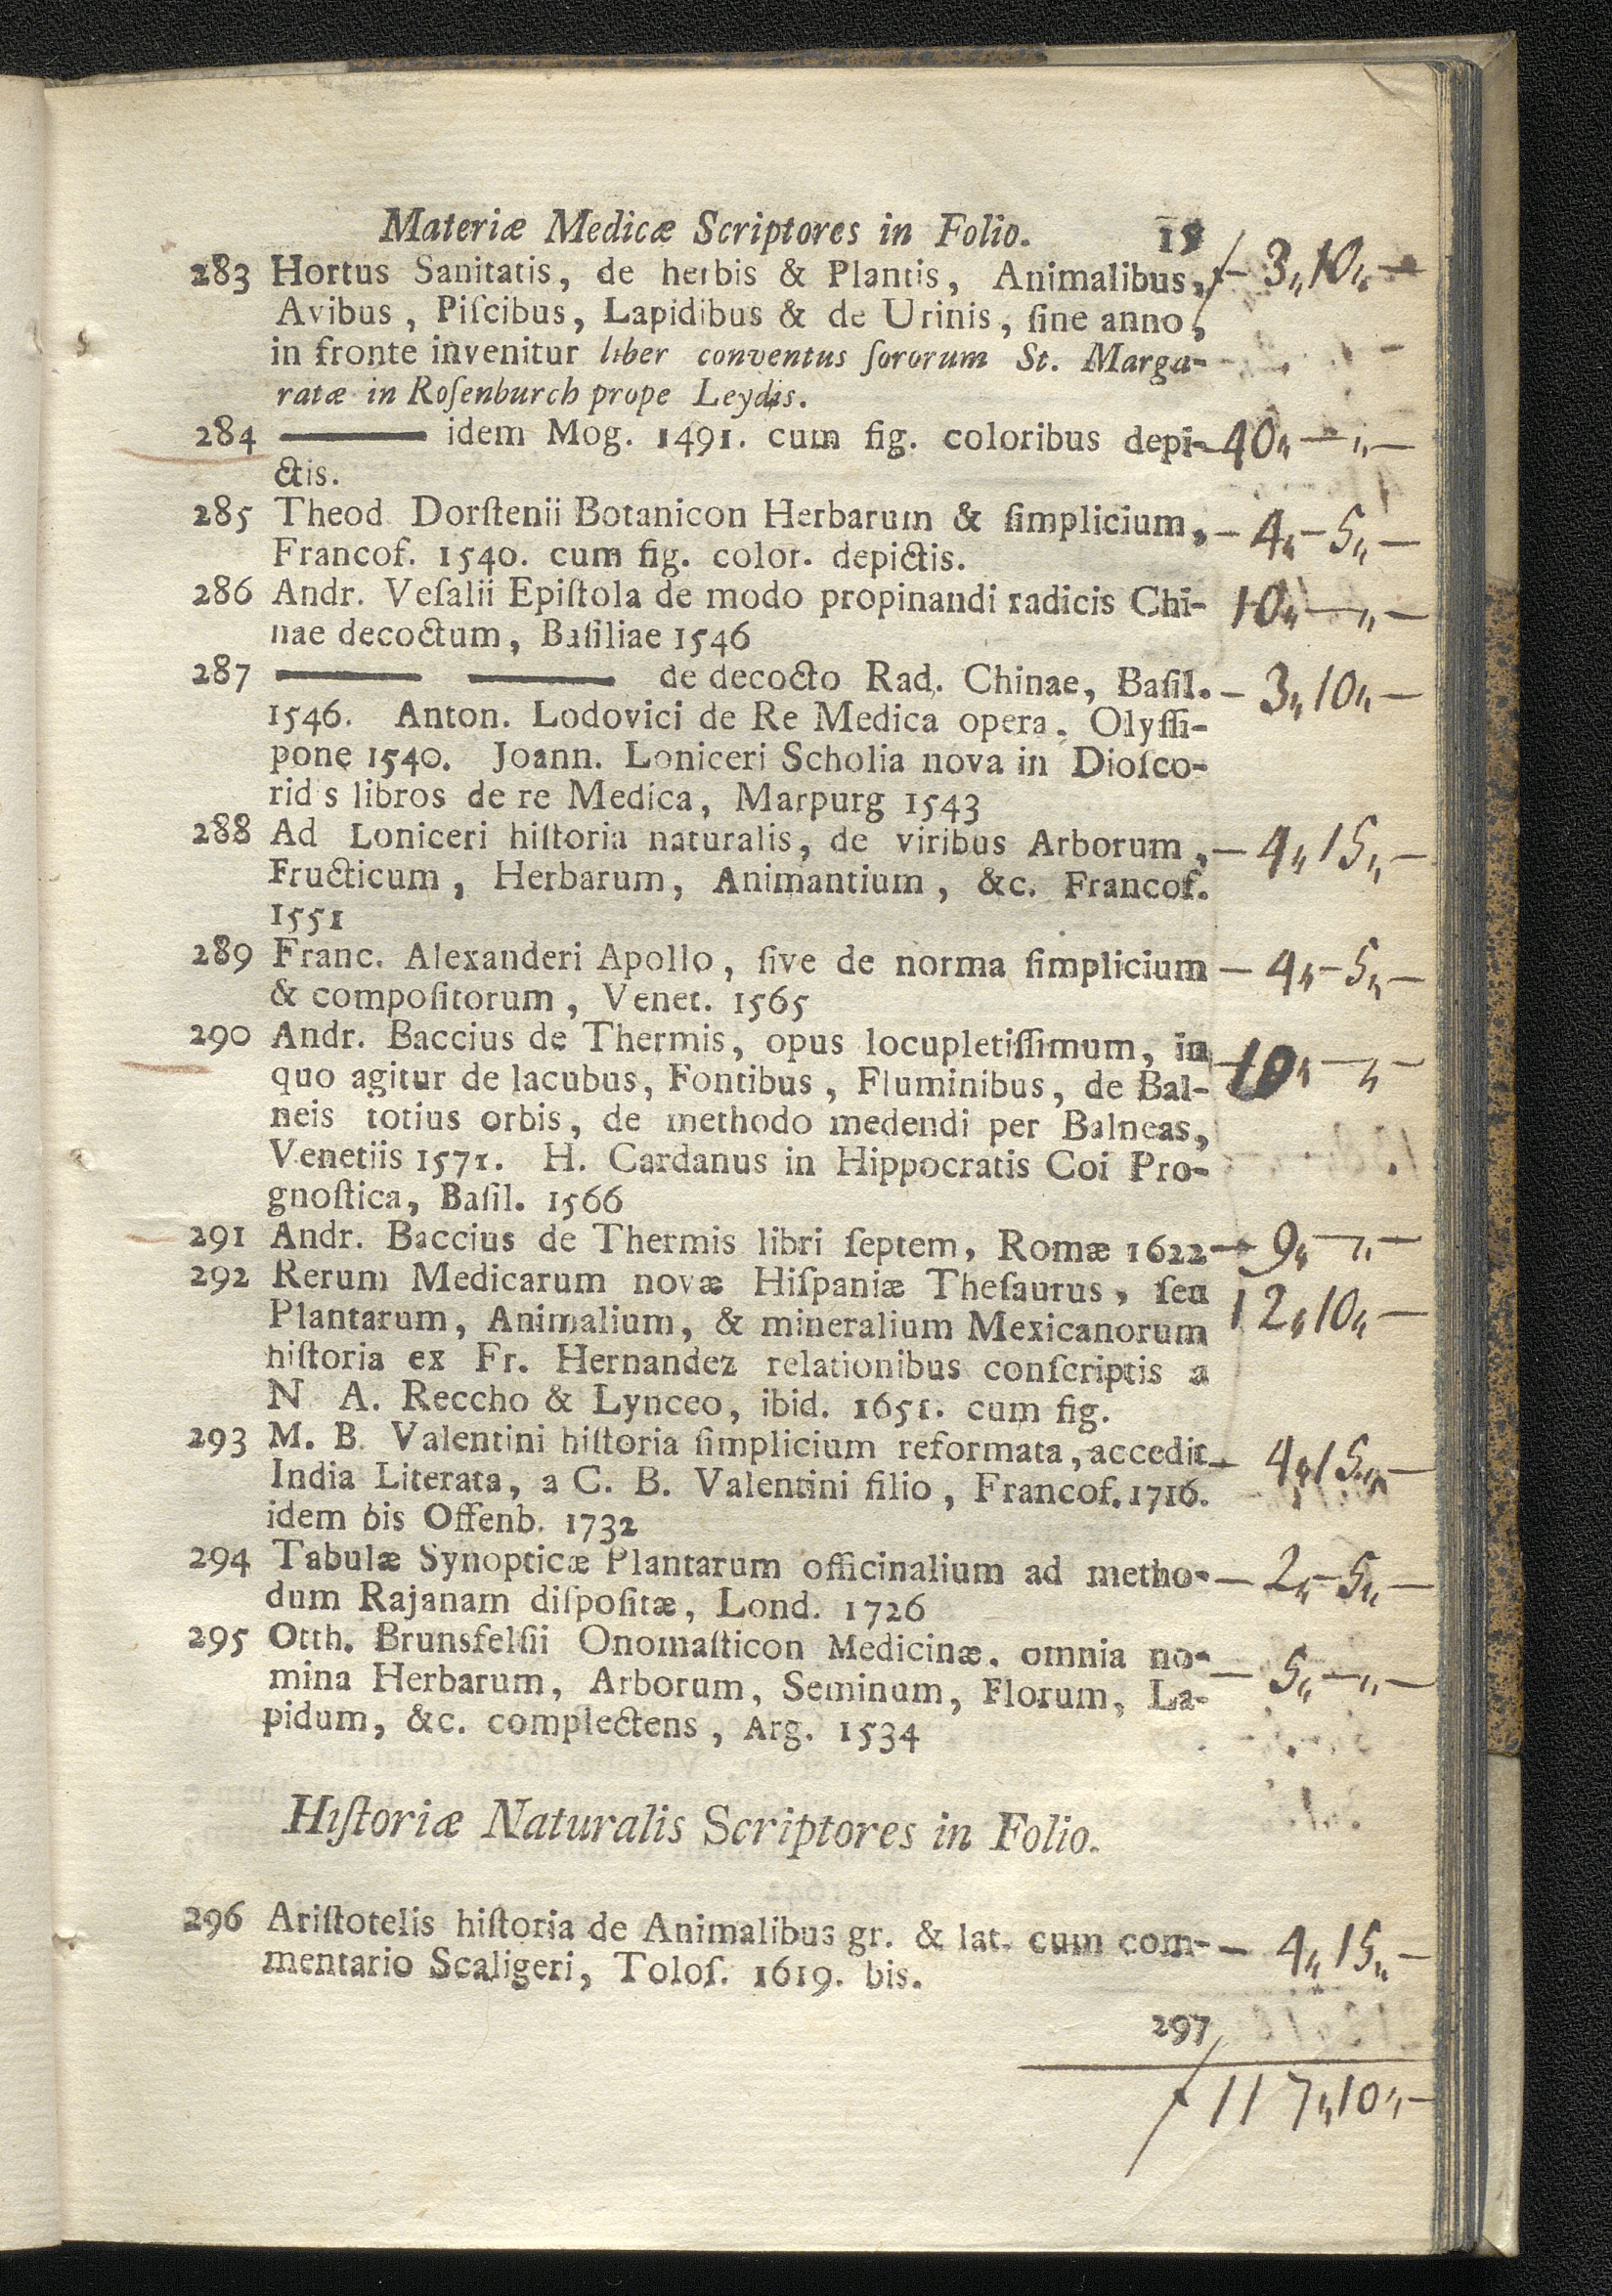 Materiæ Medicæ Scriptores in Folio. 19
283 Hortus Sanitatis, de herbis & Plantis, Animalibus, ƒ - 3„10„-
Avibus, Piſcibus, Lapidibus & de Urinis, ſine anno,
in fronte invenitur liber conventus ſororum St. Marga-
ratæ in Roſenburch prope Leydis.
284 ——— idem Mog. 1491. cum fig. coloribus depi- 40„-„-
ctis.
285 Theod Dorſtenii Botanicon Herbarum & ſimplicium, - 4„-5„-
Francof. 1540. cum fig. color. depictis.
286 Andr. Veſalii Epiſtola de modo propinandi radicis Chi- 10„-„-
nae decoctum, Baſiliae 1546
287 ——— ——— de decocto Rad. Chinae, Baſil. - 3„10„-
1546. Anton. Lodovici de Re Medica opera. Olyſſi-
pone 1540. Joann. Loniceri Scholia nova in Dioſco-
rid s libros de re Medica, Marpurg 1543
288 Ad Loniceri hiſtoria naturalis, de viribus Arborum, - 4„15„-
Fructicum, Herbarum, Animantium, &c. Francof.
1551
289 Franc. Alexanderi Apollo, ſive de norma ſimplicium - 4„-5„-
& compoſitorum, Venet. 1565
290 Andr. Baccius de Thermis, opus locupletiſſimum, in 10„-„-
quo agitur de lacubus, Fontibus, Fluminibus, de Bal-
neis totius orbis, de methodo medendi per Balneas,
Venetiis 1571. H. Cardanus in Hippocratis Coi Pro-
gnoſtica, Baſil. 1566
291 Andr. Baccius de Thermis libri ſeptem, Romæ 1622 - 9„-„-
292 Rerum Medicarum novæ Hiſpaniæ Theſaurus, ſeu 12„10„-
Plantarum, Animalium, & mineralium Mexicanorum
hiſtoria ex Fr. Hernandez relationibus conſcriptis a
N A. Reccho & Lynceo, ibid. 1651. cum fig.
293 M. B. Valentini hiſtoria ſimplicium reformata, accedit - 4„15„-
India Literata, a C. B. Valentini filio, Francof. 1716.
idem bis Offenb. 1732
294 Tabulæ Synopticæ Plantarum officinalium ad metho- - 2„-5„-
dum Rajanam diſpoſitæ, Lond. 1726
295 Otth. Brunsfelſii Onomaſticon Medicinæ. omnia no- - 5„-„-
mina Herbarum, Arborum, Seminum, Florum, La-
pidum, &c. complectens, Arg. 1534
Hiſtoriæ Naturalis Scriptores in Folio.
296 Ariſtotelis hiſtoria de Animalibus gr. & lat. cum com- - 4„15„-
mentario Scaligeri, Toloſ. 1619. bis.
297
ƒ 117„10„-